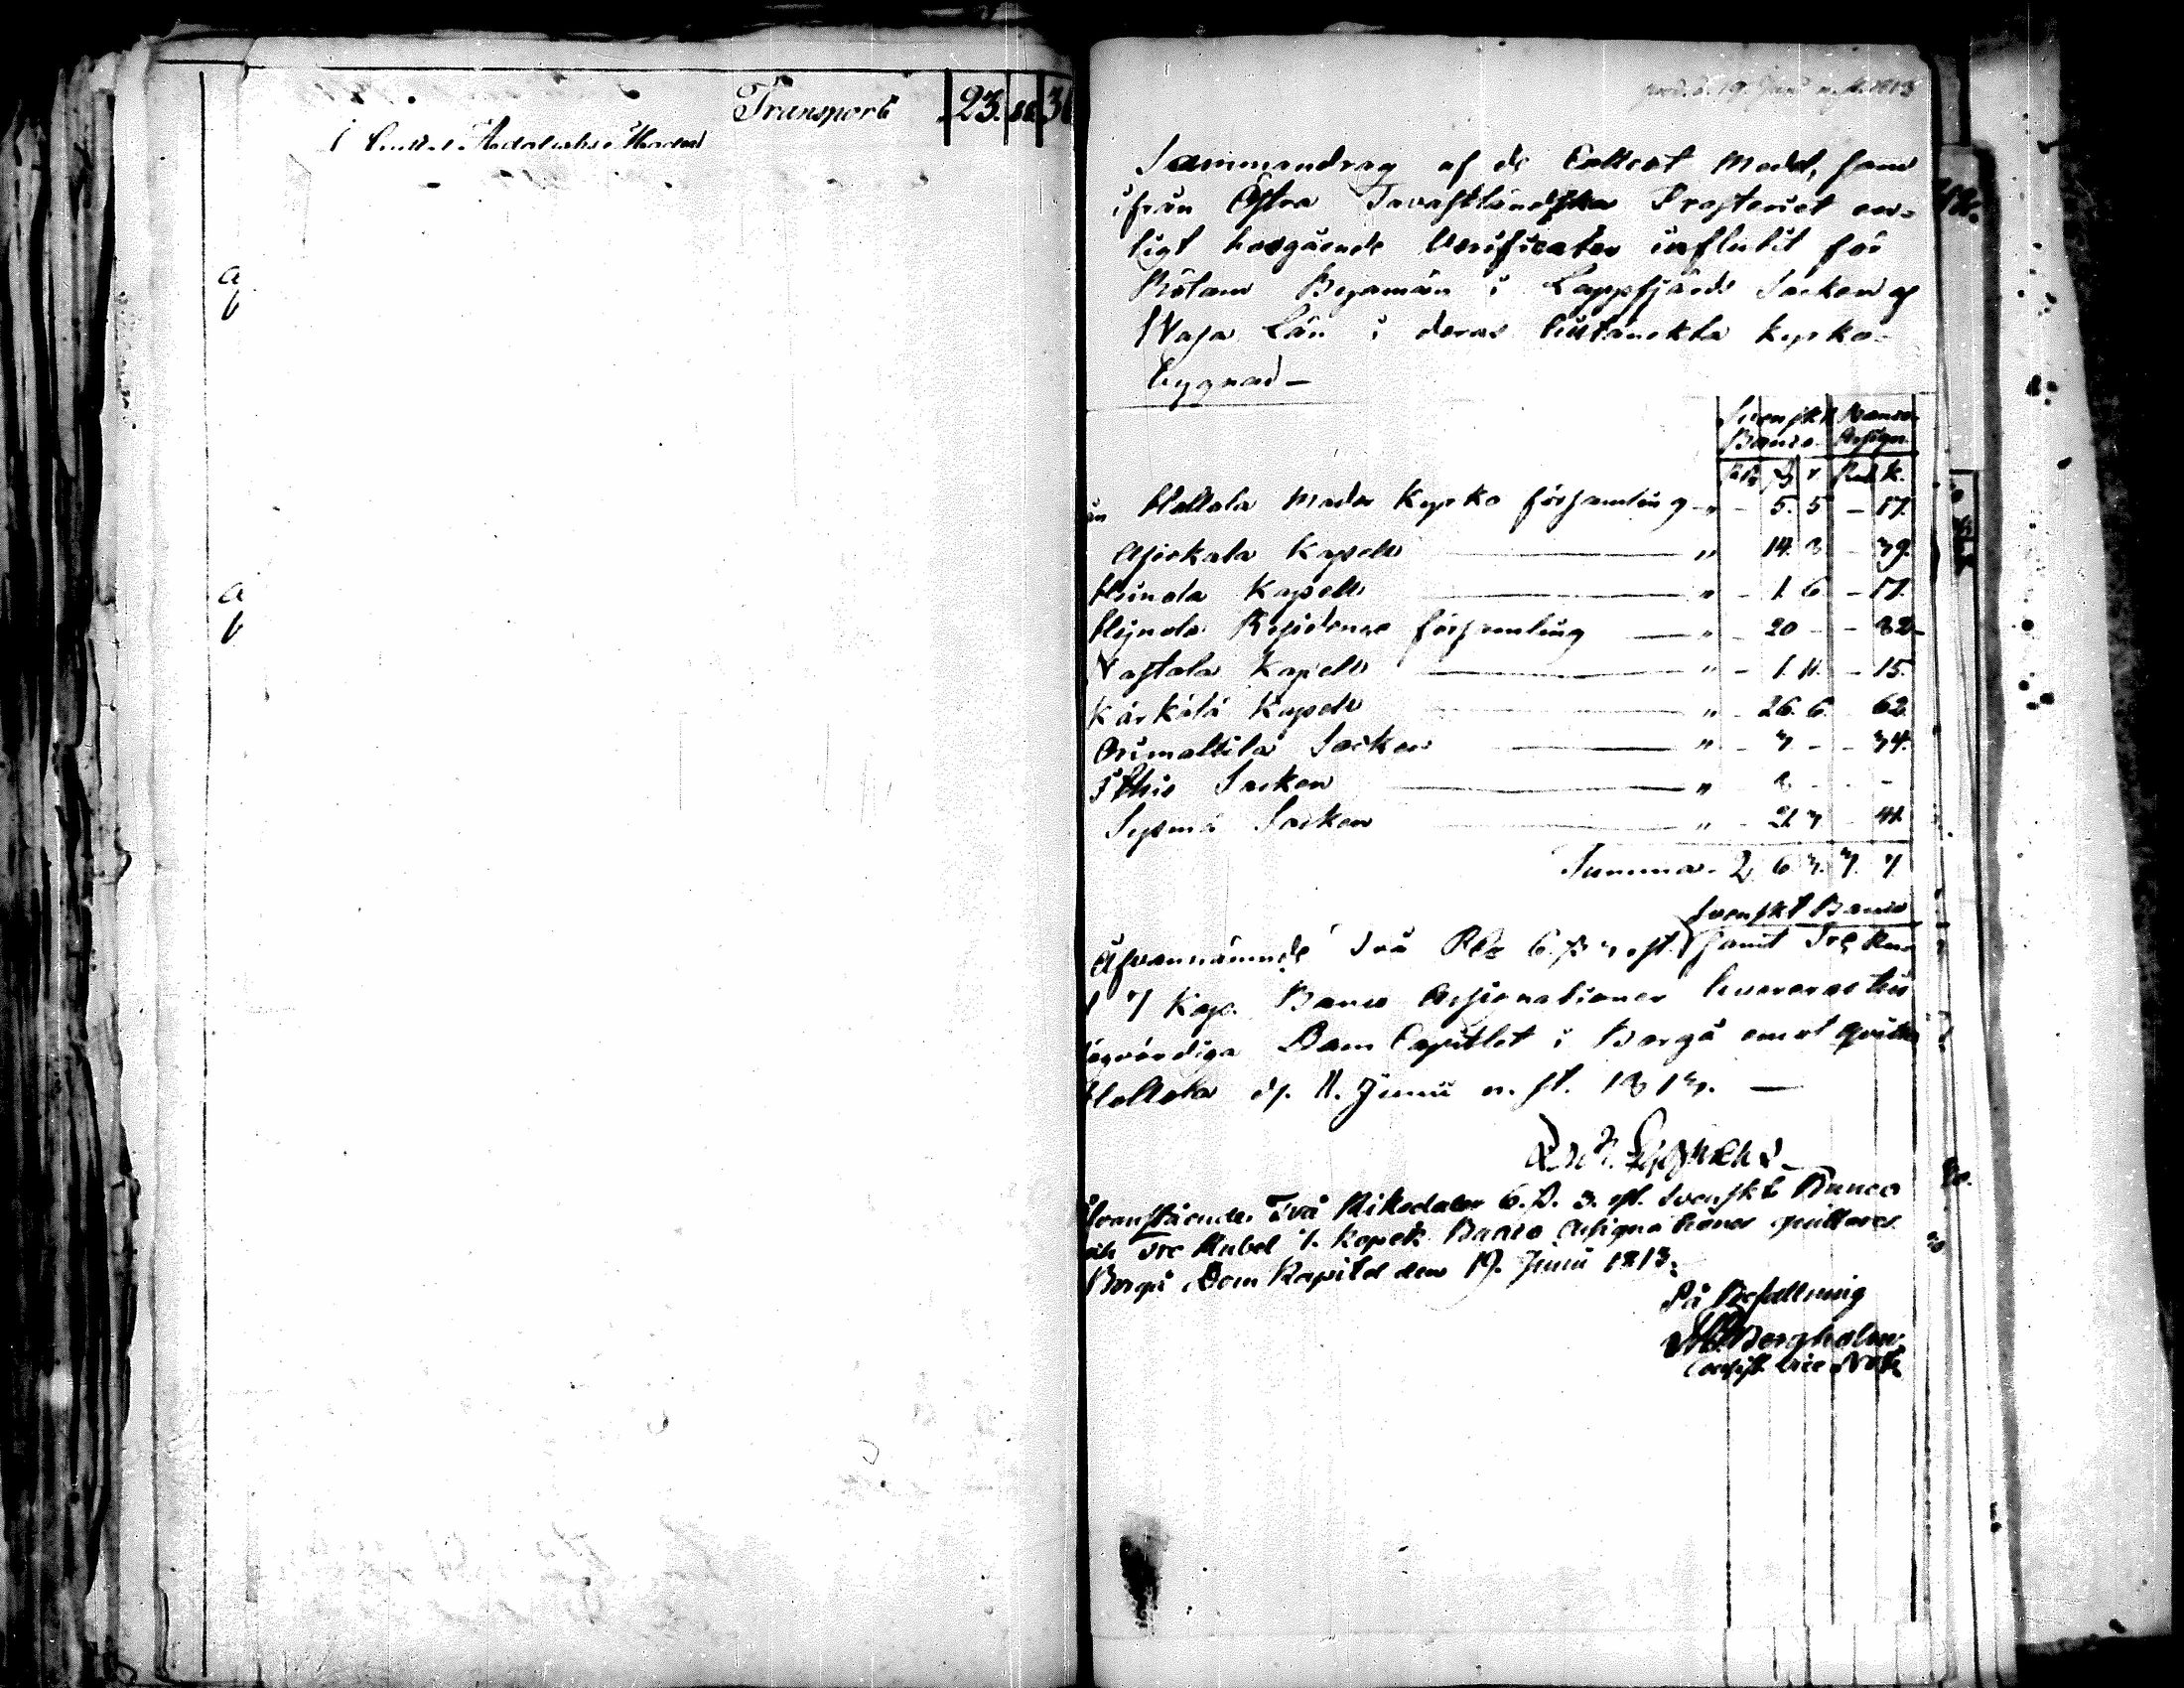 Transport 23.
prod. d. 19. Junii n. st. 1813
Sammandrag af de Collect Medel, som
ifrån Östra Tavastländska Prosteriet en-
ligt hosgående Verificater influtit för
Bötom Byamän i Lappfjärds Socken af
Wasa Län i deras tilltänckta kyrko-
bygnad —
Svenskt Banco
Banco. Assign.
Rdr ß r. Rub. k.
ån Hollola Moder Kyrko församling - „ - 5. 5 - 17.
Asickala Kapell — „ 14. 3 - 39.
Heinola Kapell — „ - 1. 6. - 17.
Heinola Residence församling — „ - 20 - - 32 -
Nastola Kapell — „ - 1. 11. - 15.
Kärkölä Kapell — „ - 26. 6. 62.
Orimattila Socken — „ - 3 - - 34.
Itthis Socken — „ 2 - - -
Sysmä Socken — „ - 21. 3 - 41.
Summa. 2. 6. 3. 3. 7.
Svenskt Banco
Åfvannämnde två Rdr 6. ß 3 rst. samt Tre Ru-
7 Kop. Banco Assignationer levereras till
ögvördiga Dom Capitlet i Borgå emot qvitto
Hollola d. 11. Junii n. st. 1813. —
Ofvanstående Två Riksdaler 6. ß. 3. rst. Svenskt Banco
och Tre Rubel 7. Kopek Banco Assignationer quitteres
Borgå Dom Kapitel den 19. Junii 1813.
På Befallning
Bergholm
Consist. Vice Not.